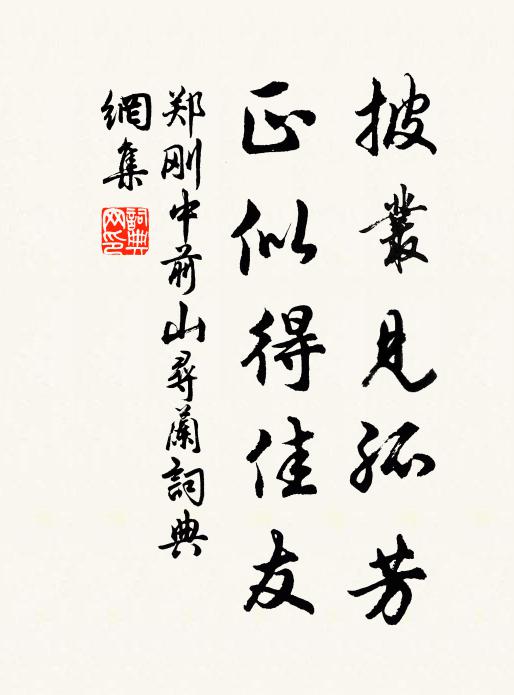 披叢見孤芳
正似得佳友
郑刚中前山尋蘭詞典
網集
詞典网印